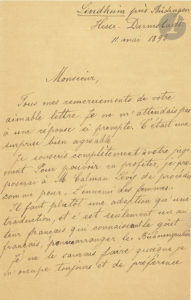 Lindheim près Büdingen
Hesse-Darmstadt
11 mars 189
Monsieur,
Tous mes remerciements de votre
aimable lettre. Je ne m'attendais pas
à une réponse si prompte. C'était une
surprise bien agréable.
Je consens complètement à votre juge
ment. Pour pouvoir en profiter, je pro
poserai à M. Calman Lévy de procéder
comme pour l'ennemi des femmes.
Il faut plutôt une adaption qu'une
traduction, et c'est seulement un au
teur français qui connaisse le goût
français, pour arranger le
Je ne le saurais faire quoique je
m'occupe toujours et de préférence